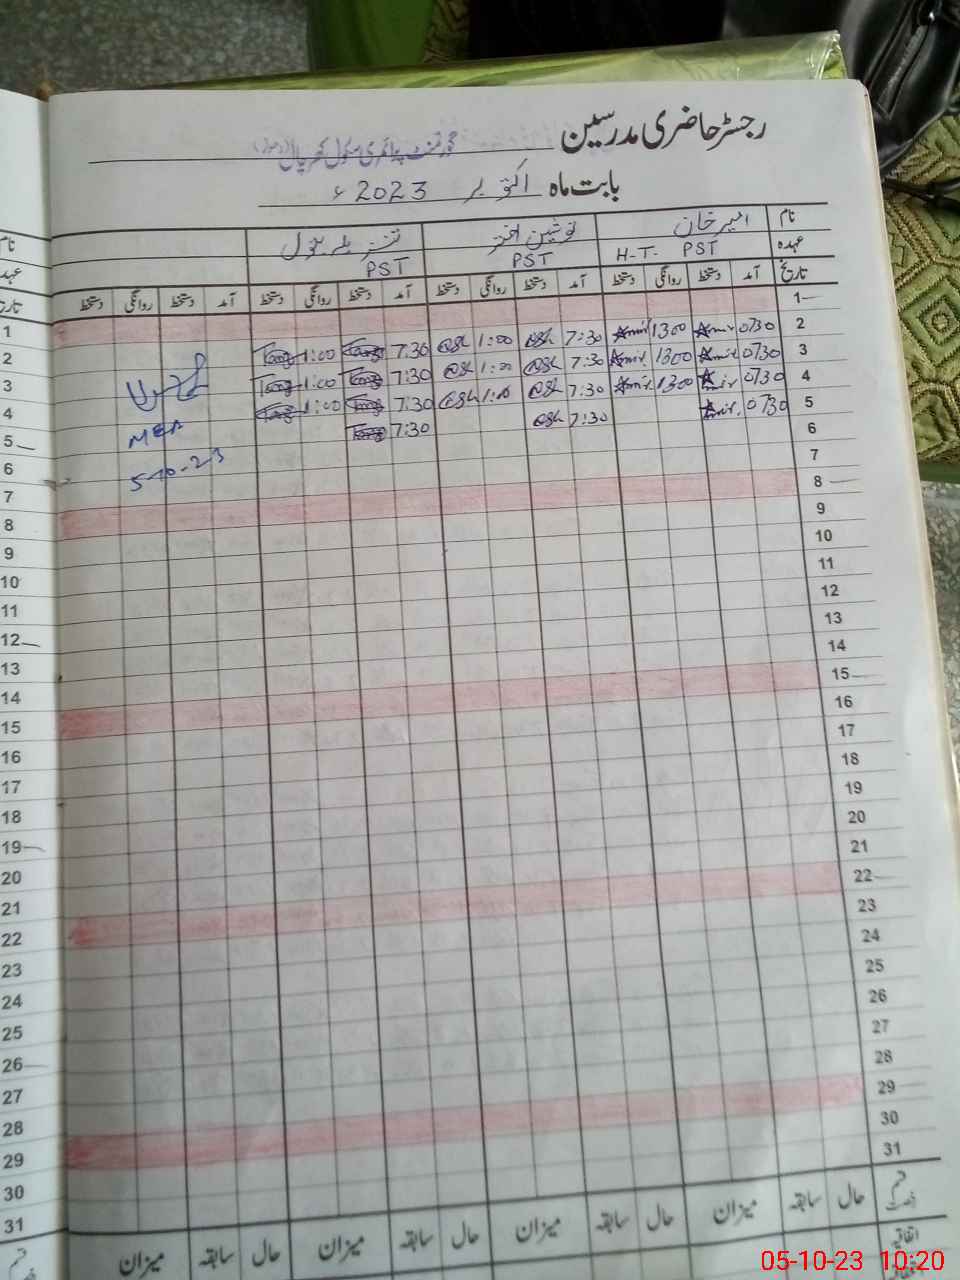 رجسٹر حاضری مدرسین گورنمنٹ پرائمری سکول
بابت ماہ اکتوبر 2023ء
نام امیر خان نوشین اختر نام
عہدہ PST H-T- PST PST عہدہ
تاریخ آمد دستخط روانگی دستخط آمد دستخط روانگی دستخط آمد دستخط روانگی دستخط آمد دستخط روانگی دستخط
1 1
2 0730 Amir 1300 Amir 7:30 1:00 7:30 1:00 2
3 0730 Amir 1300 Amir 7:30 1:00 7:30 1:00 3
4 0730 Amir 1300 Amir 7:30 1:00 7:30 1:00 4
5 0730 Amir 7:30 7:30 MEA 5
6 5-10-23 6
7 7
8 8
9 9
10 10
11 11
12 12
13 13
14 14
15 15
16 16
17 17
18 18
19 19
20 20
21 21
22 22
23 23
24 24
25 25
26 26
27 27
28 28
29 29
30 30
31 31
قسم رخصت حال سابقہ میزان حال سابقہ میزان حال سابقہ میزان حال سابقہ میزان قسم
اتفاقیہ
05-10-23 10:20